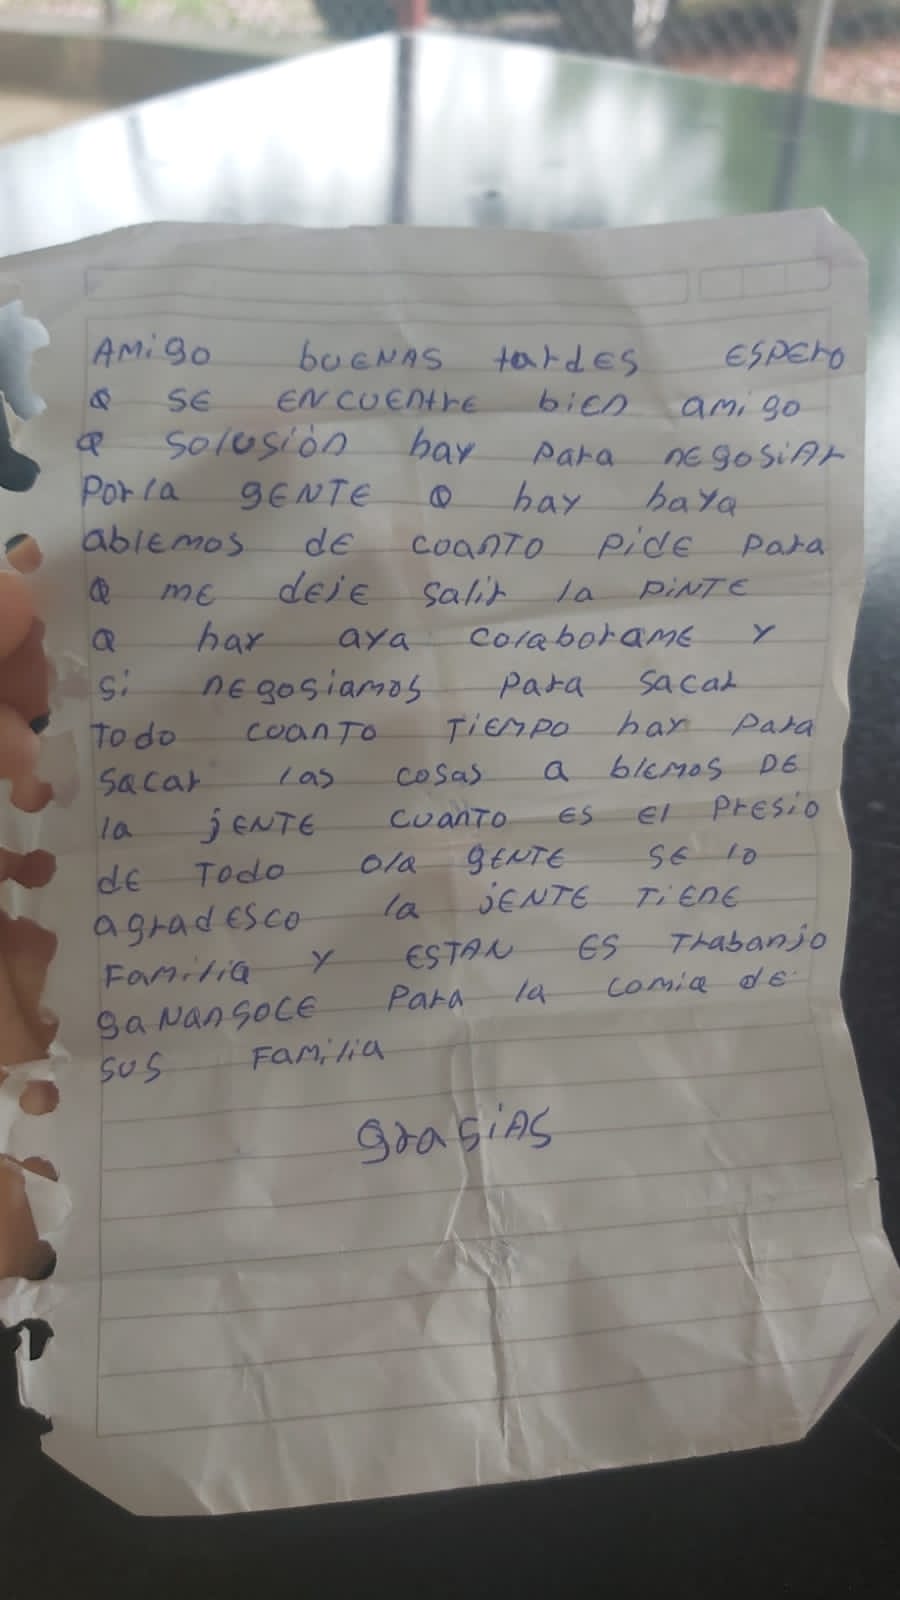 AMigo buENAS tardES ESPEro
Q SE ENCUENtrE biEN amigo
Q Solusión hay para nEgosiAr
Por la gENTE Q hay haya
ablEmos dE cuanTo PidE Para
Q mE dEjE Salir la PiNTE
Q hay aya colaboramE Y
Si nEgosiamos Para sacar
Todo cuanTo TiEmpo hay Para
Sacar las cosas a blEmos DE
la jENTE cuanTo ES El PrESio
dE Todo ola gENTE SE lo
agradESco la jENTE TiENE
Familia Y ESTAN ES Trabanjo
gaNANSOCE Para la comia dE
SuS Familia
grasiAS